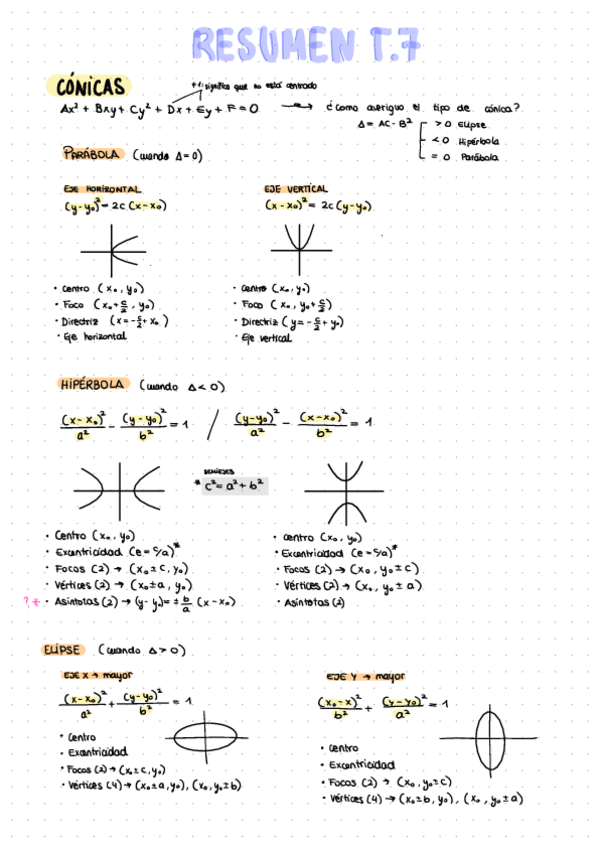 RESUMEN T.7
CÓNICAS
significa que no está centrado
Ax² + Bxy + Cy² + Dx + Ey + F = 0 → ¿Cómo averiguo el tipo de cónica?
Δ = AC - B² > 0 Elipse
< 0 Hipérbola
= 0 Parábola
PARÁBOLA (cuando Δ=0)
EJE HORIZONTAL
(y-y₀)² = 2c (x-x₀)
· Centro (x₀, y₀)
· Foco (x₀+c/2, y₀)
· Directriz (x=-c/2+x₀)
· Eje horizontal
EJE VERTICAL
(x-x₀)² = 2c (y-y₀)
· Centro (x₀, y₀)
· Foco (x₀, y₀+c/2)
· Directriz (y=-c/2+y₀)
· Eje vertical
HIPÉRBOLA (cuando Δ<0)
(x-x₀)²/a² - (y-y₀)²/b² = 1 / (y-y₀)²/a² - (x-x₀)²/b² = 1
SEMIEJES
* c² = a² + b²
· Centro (x₀, y₀)
· Excentricidad (e = c/a)*
· Focos (2) → (x₀±c, y₀)
· Vértices (2) → (x₀±a, y₀)
?* · Asíntotas (2) → (y-y₀) = ± b/a (x-x₀)
· Centro (x₀, y₀)
· Excentricidad (e = c/a)*
· Focos (2) → (x₀, y₀±c)
· Vértices (2) → (x₀, y₀±a)
· Asíntotas (2)
ELIPSE (cuando Δ>0)
EJE X → mayor
(x-x₀)²/a² + (y-y₀)²/b² = 1
· Centro
· Excentricidad
· Focos (2) → (x₀±c, y₀)
· Vértices (4) → (x₀±a, y₀), (x₀, y₀±b)
EJE Y → mayor
(x₀-x)²/b² + (y-y₀)²/a² = 1
· Centro
· Excentricidad
· Focos (2) → (x₀, y₀±c)
· Vértices (4) → (x₀±b, y₀), (x₀, y₀±a)